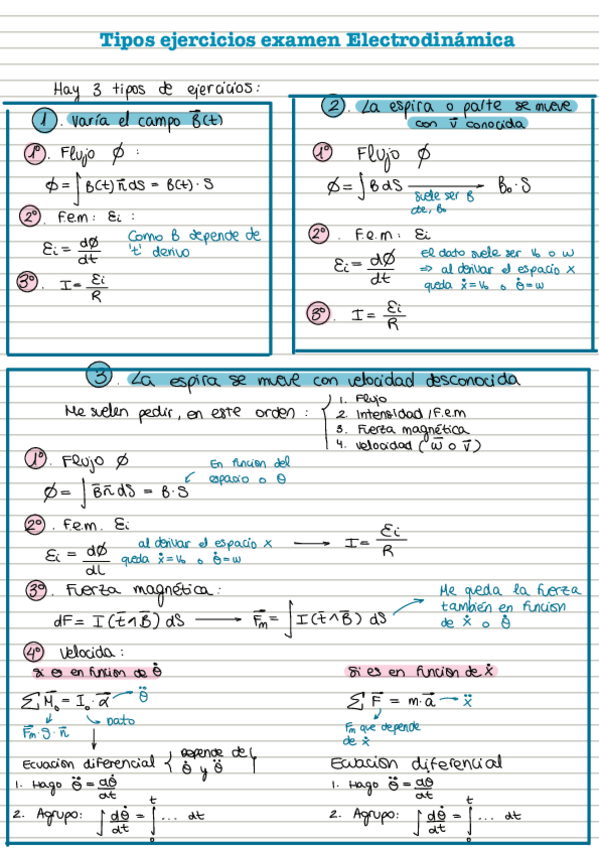 Tipos ejercicios examen Electrodinámica
Hay 3 tipos de ejercicios:
1. Varía el campo B⃗(t)
1º. Flujo ∅ :
∅ = ∫ B(t) n⃗ dS = B(t) · S
2º. F.e.m: Ɛi :
Ɛi = d∅/dt
Como B depende de
't' derivo
3º. I = Ɛi/R
2. La espira o parte se mueve
con v⃗ conocida
1º Flujo ∅
∅ = ∫ B dS → B₀ · S
suele ser B
cte, B₀
2º. F.e.m: Ɛi
Ɛi = d∅/dt
El dato suele ser V₀ o ω
⇒ al derivar el espacio x
queda ẋ = V₀ o θ̇ = ω
3º. I = Ɛi/R
3. La espira se mueve con velocidad desconocida
Me suelen pedir, en este orden :
1. Flujo
2. Intensidad /F.e.m
3. Fuerza magnética
4. Velocidad ( ω⃗ o v⃗ )
1º. Flujo ∅
∅ = ∫ B⃗ n⃗ dS = B · S
En funcion del
espacio o θ
2º. F.e.m. Ɛi
Ɛi = d∅/dt
al derivar el espacio x
queda ẋ = V₀ o θ̇ = ω
→ I = Ɛi/R
3º. Fuerza magnética :
dF = I (t⃗ ∧ B⃗) dS → F⃗m = ∫ I (t⃗ ∧ B⃗) dS
Me queda la fuerza
también en funcion
de ẋ o θ̇
4º Velocida :
Si es en funcion de θ̇
∑ M⃗₀ = I₀ · α⃗ → θ̈
F⃗m · S · n⃗
Dato
Ecuacion diferencial { Depende de
θ̇ y θ̈
1. Hago θ̈ = dθ̇/dt
2. Agrupo: ∫ dθ̇/dt = ∫₀ᵗ ... dt
Si es en funcion de ẋ
∑ F⃗ = m · a⃗ → ẍ
Fm que depende
de ẋ
Ecuacion diferencial
1. Hago θ̈ = dθ̇/dt
2. Agrupo: ∫ dθ̇/dt = ∫₀ᵗ ... dt